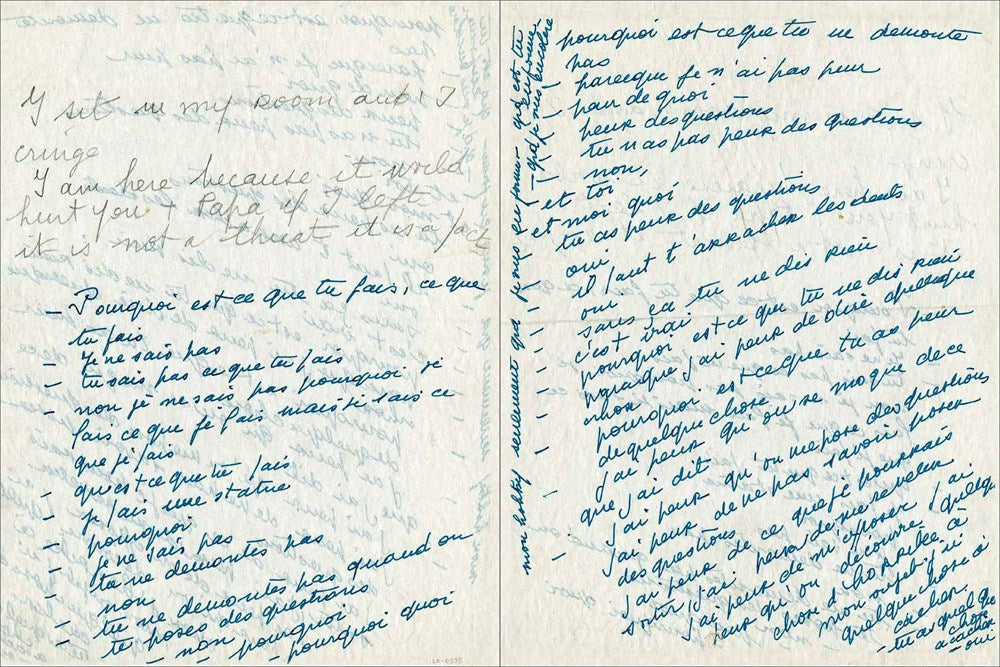 I sit in my room and I
cringe
I am here because it would
hurt you + Papa if I left
it is not a threat it is a fact
– Pourquoi est-ce que tu fais, ce que
tu fais
– Je ne sais pas
– tu sais pas ce que tu fais
– non je ne sais pas pourquoi je
fais ce que je fais mais je sais ce
que je fais
– qu'est ce que tu fais
– je fais une statue
– pourquoi
– je ne sais pas
– tu ne demontes pas
– non
– tu ne demontes pas quand on
te poses des questions
– non – pourquoi
– pourquoi quoi
pourquoi est ce que tu ne demonte
pas
– parceque je n'ai pas peur
– peur de quoi
peur des questions
tu n as pas peur des questions
non,
et toi
et moi quoi
tu as peur des questions
oui
il faut t'arracher les dents
oui
sans ça tu ne dis rien
c'est vrai
pourquoi est-ce que tu ne dis rien
parceque j'ai peur de dire quelque
chose
pourquoi est-ce que tu as peur
de quelque chose
j'ai peur qu'on se moque de ce
que j'ai dit
j'ai peur qu'on me pose des questions
j'ai peur de ne pas savoir poser
des questions
j'ai peur de ce que je pourrais
sortir j'ai peur de me reveler
j'ai peur de m'exposer j'ai
peur qu'on découvre quelque
chose d
mon sujet j'ai
quelque chose à
cacher.
– tu as quelque
chose
a cacher
– oui
mon hobby seulement que je suis
– que je suis en colere